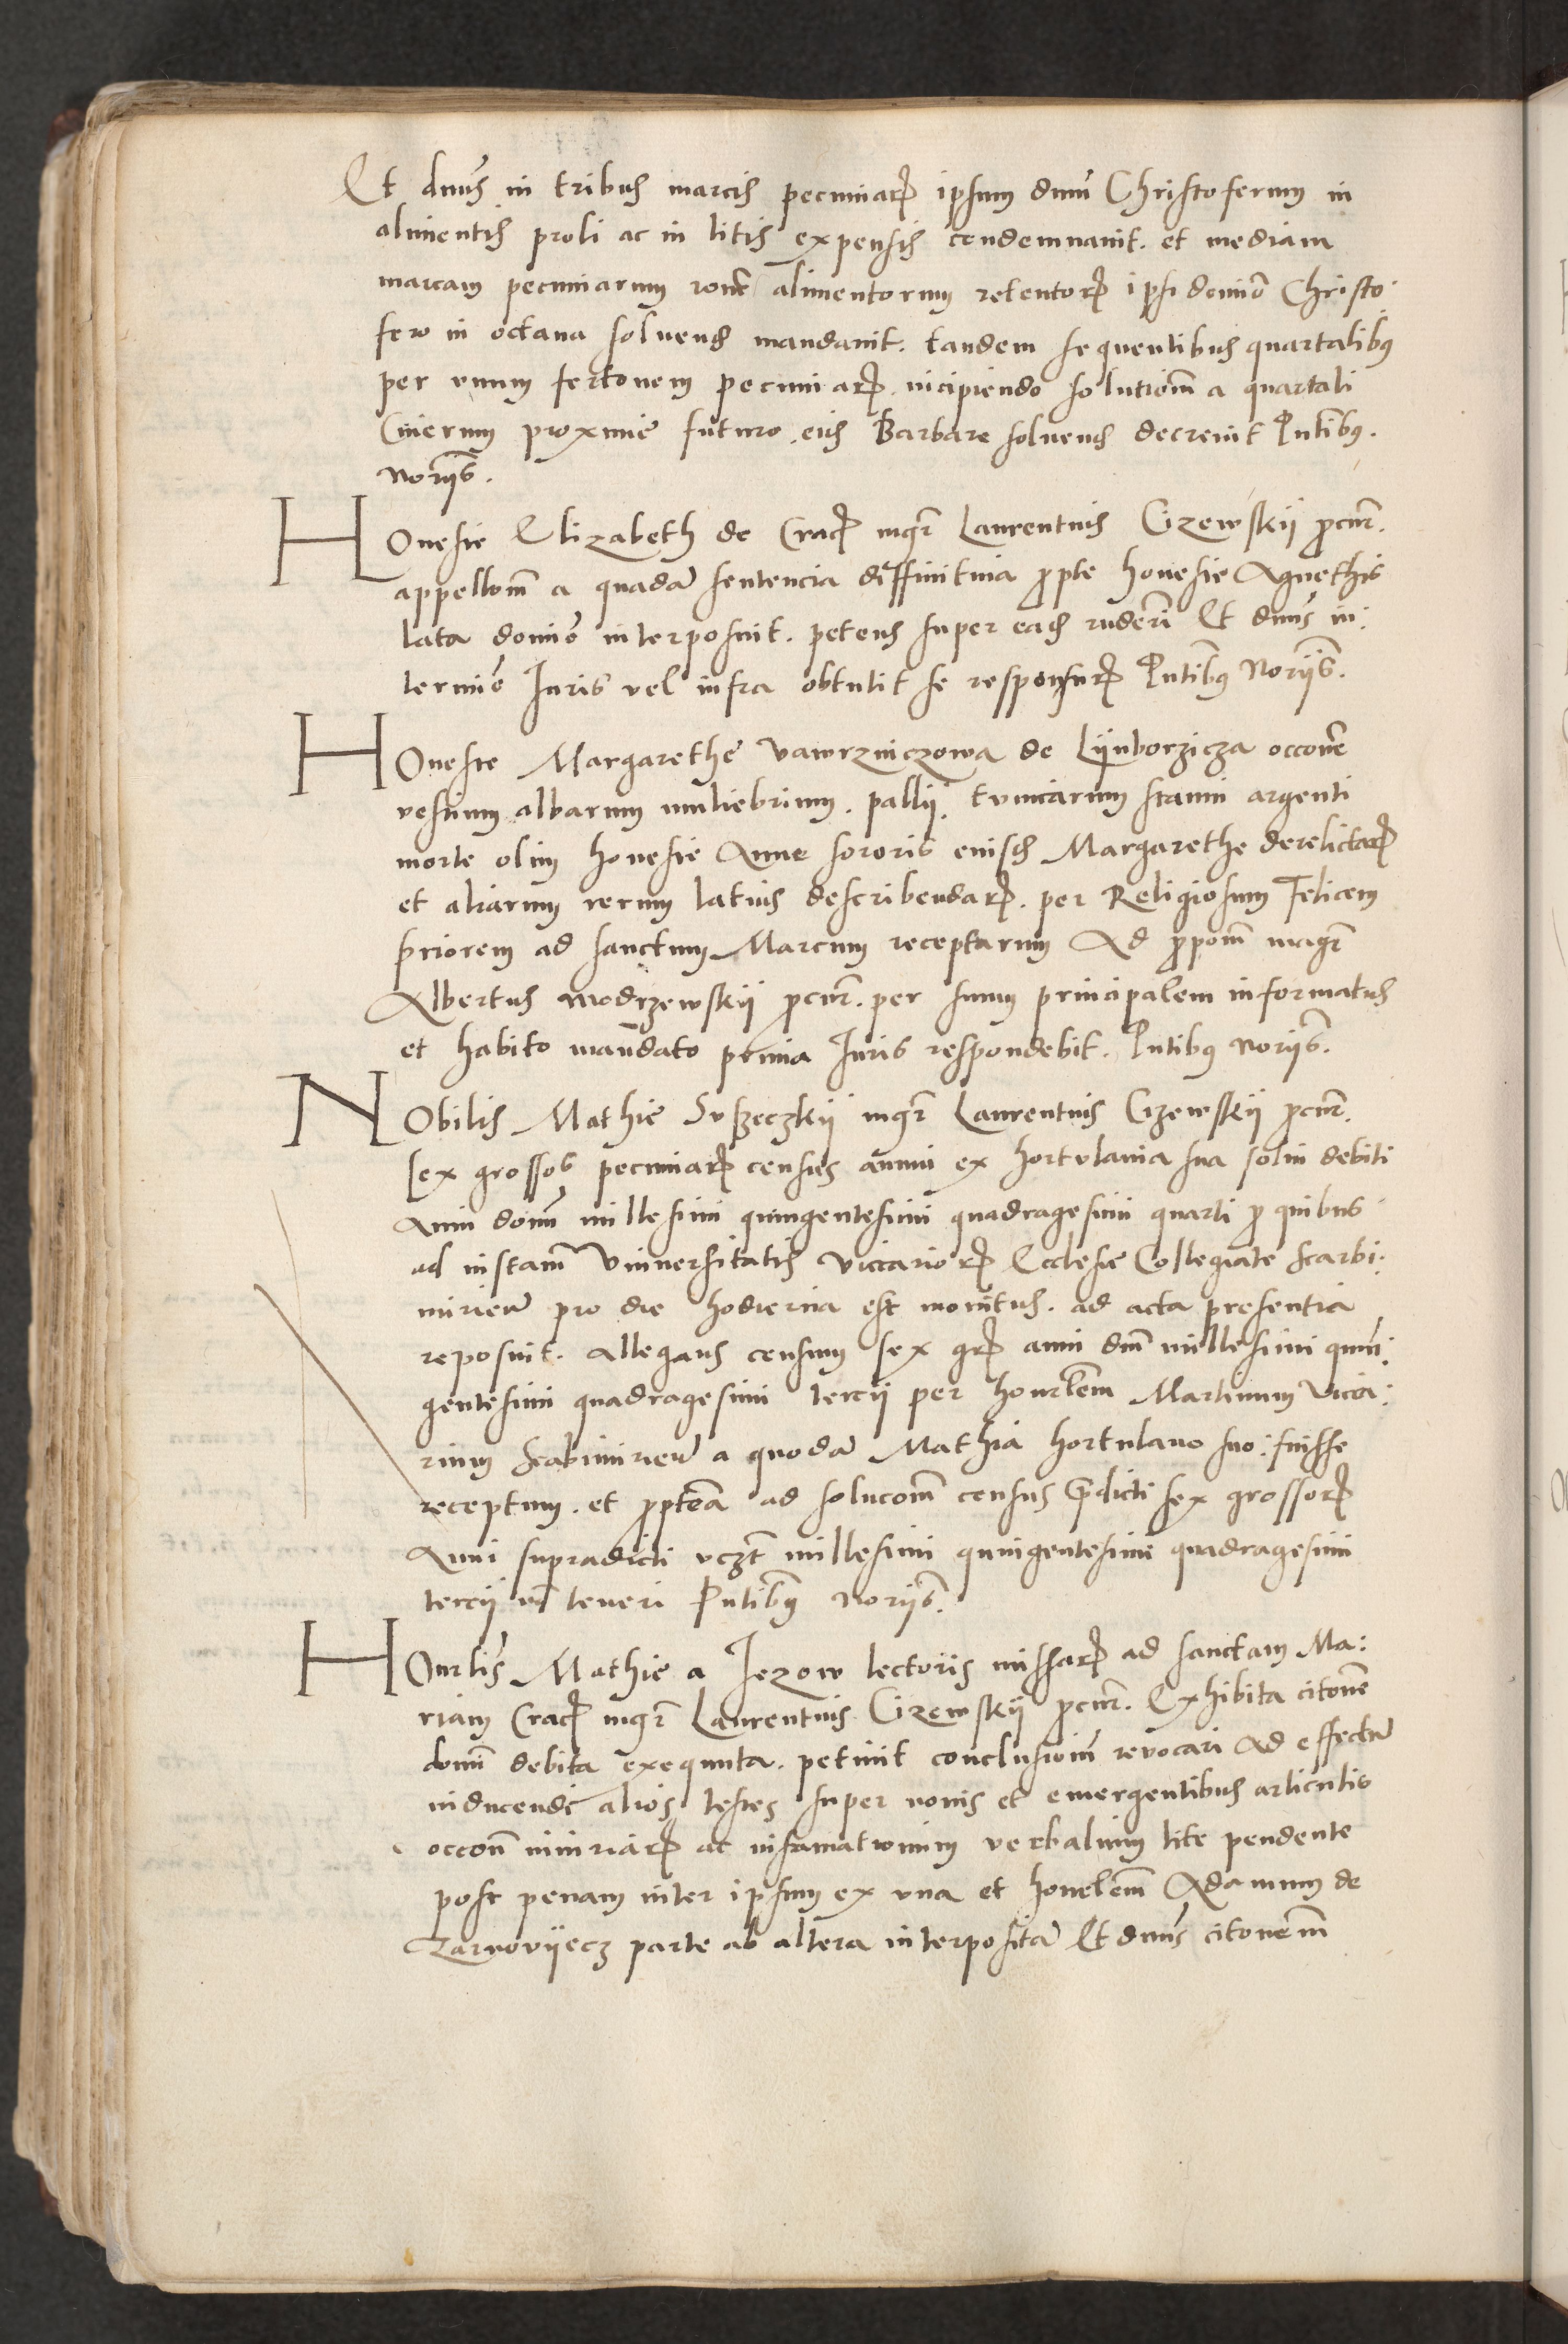 Et dnus in tribus marcis pecuniarꝫ ipsum dnm Christoferum in
alimentis proli ac in litis expensis condemnavit. et mediam
marcam pecuniarum rone alimentorum retentorꝫ ipsi domino Christo
fero in octava solvend mandavit. tandem sequentibus quartalibus
per unum fertonem pecuniarꝫ incipiendo solutiom a quartali
Cinerum proxime futuro eid Barbare solvend decrevit Pntibus
Noriis.
HOneste Elizabeth de Cracꝫ mgr Laurentius Cizewskij procur.
appellom a quadam sentencia diffinitiva pro pte honeste Agnethis
lata domino interposuit. petens super eadem ruderi Et dnus in
termino Iuris vel infra obtulit se responsurꝫ Pntibus Noriis.
HOneste Margarethe vawrziniczowa de Lijnborzicza occone
vestium albarum muliebrium. pallij. tunicarum stanni argenti
morte olim honeste Anne sororis eiusd Margarethe derelictarꝫ
et aliarum rerum latius describendarꝫ. per Religiosum Felicem
priorem ad sanctum Marcum receptarum Ad propom magr
Albertus Modrzewskij procur. per suum principalem informatus
et habito mandato prima Iuris respondebit. Pntibus Noriis.
NObilis Mathie Suszeczkij mgr Laurentius Cizewskij procur.
sex grossos pecuniarꝫ census annui ex hortulania sua solvi debiti
Anni domi millesimi quingentesimi quadragesimi quarti pro quibus
ad instam Universitatis vicariorꝫ Ecclesie Collegiate Scarbi
mirien pro die hodierna est monitus. ad acta presentia
reposuit. Allegans censum sex grꝫ anni dni millesimi quin
gentesimi quadragesimi tercij per honrlem Martinum Vica
rium Scabimirien a quodam Mathia hortulano suo fuisse
receptum. et propterea ad solucom census predicti sex grossorꝫ
Anni supradicti vczt millesimi quingentesimi quadragesimi
tercij teneri Pntibus Noriis.
HOnrlis Mathie a Jezow lectoris missarꝫ ad sanctam Ma
riam Cracꝫ mgr Laurentius Cizewskij procur. Exhibita citone
domi debita exequuta. petiuit conclusiom revocari Ad effectum
inducendi alios testes super novis et emergentibus articulis
occon iniuriarꝫ ac infamationum verbalium lite pendente
post penam inter ipsum ex una et honrlem Adamum de
Zarnovijecz parte ab altera interpositam Et dnus citonem